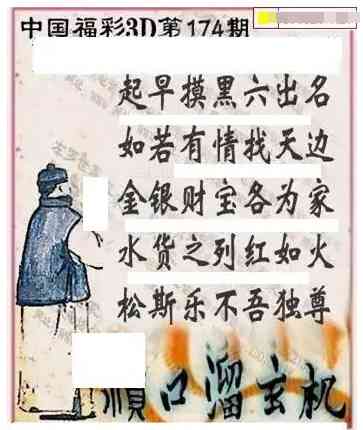 中国福彩3D第174期
起早摸黑六出名
如若有情找天边
金银财宝各为家
水货之列红如火
松斯乐不吾独尊
顺口溜玄机